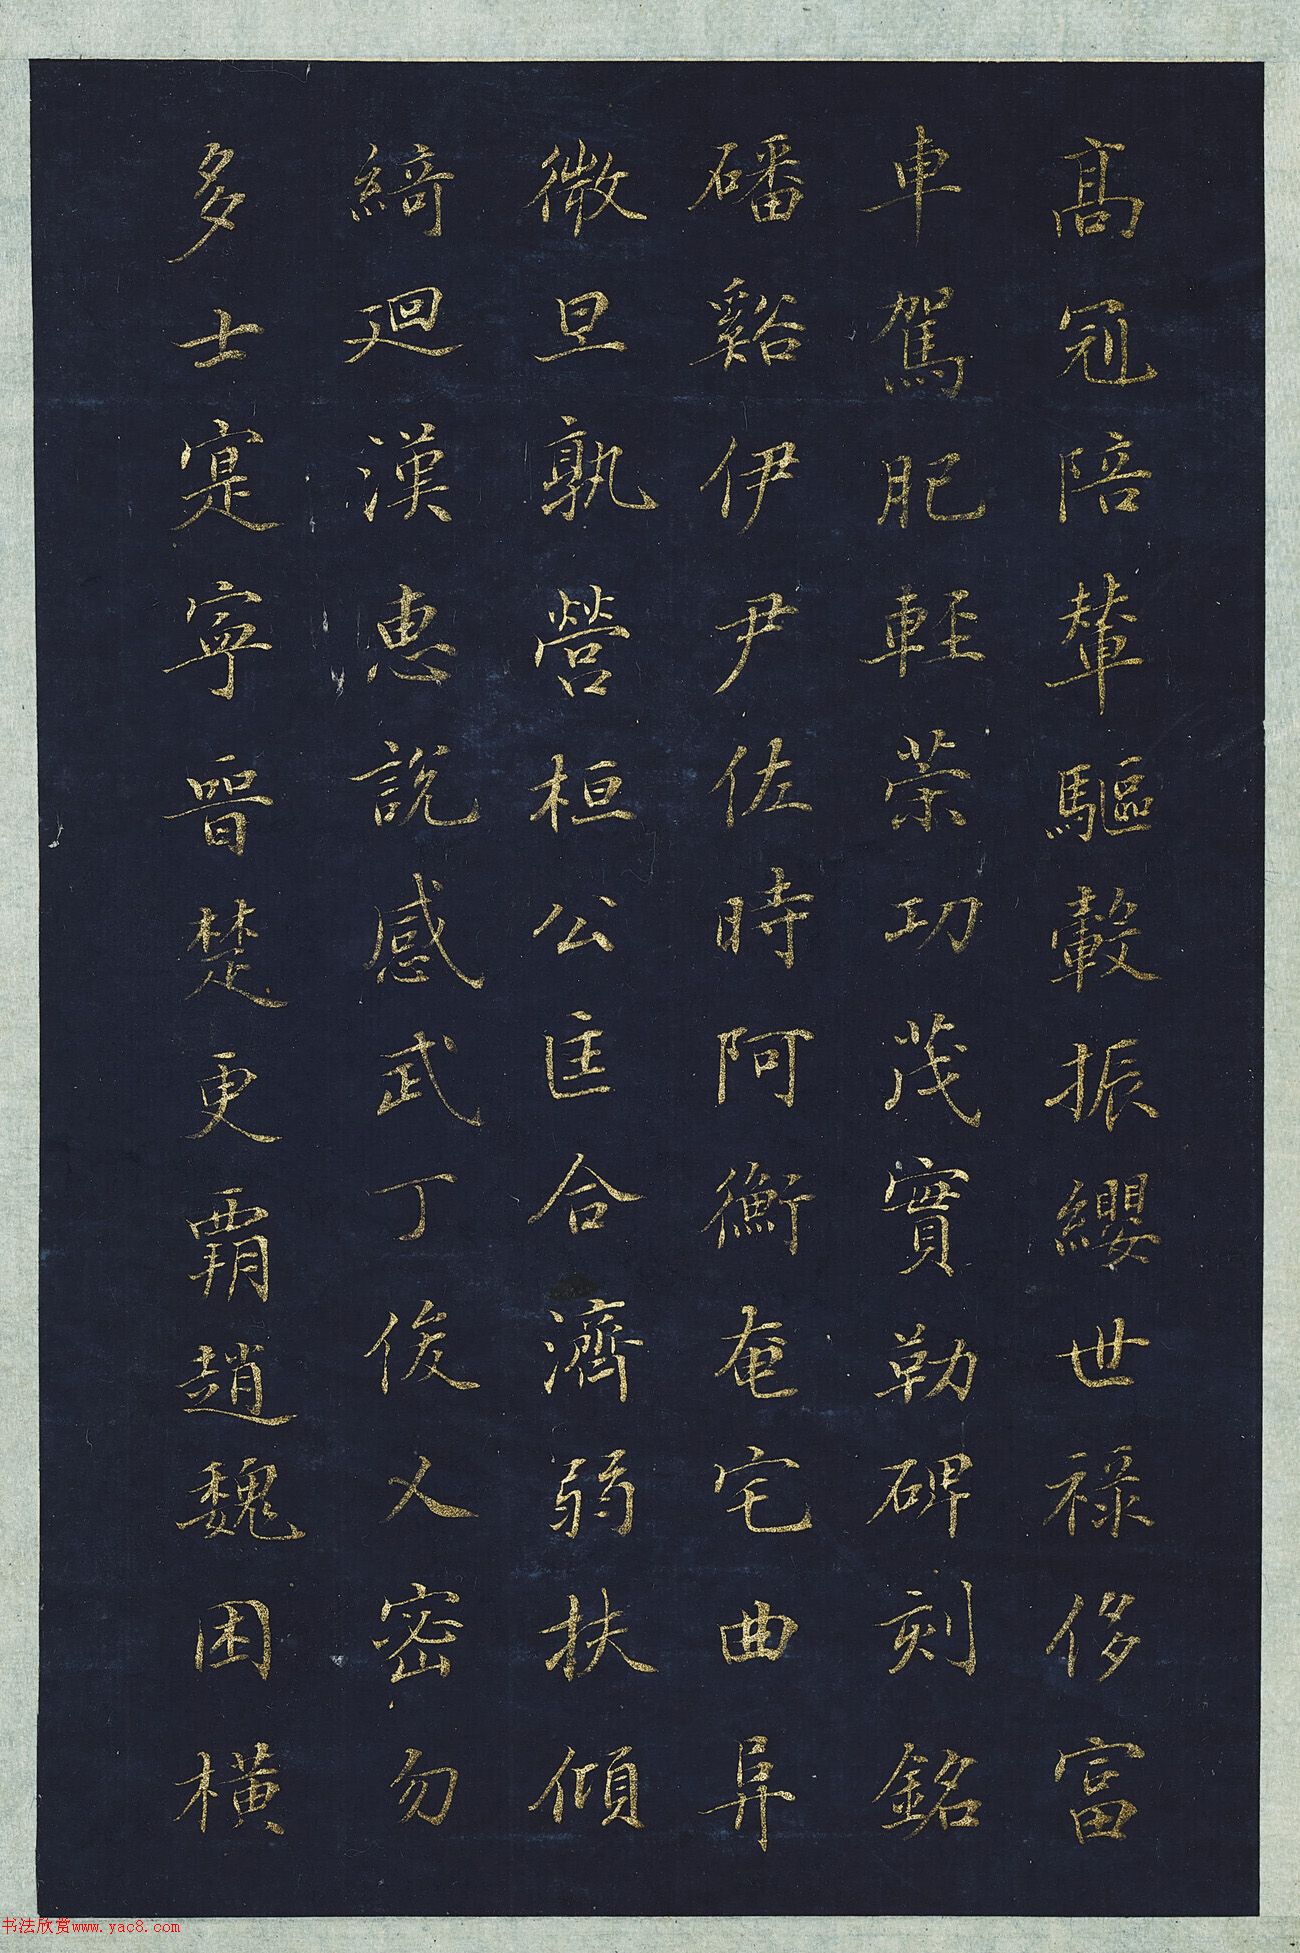 高冠陪輦驅轂振纓世祿侈富
車駕肥輕榮功茂實勒碑刻銘
磻谿伊尹佐時阿衡奄宅曲阜
微旦孰營桓公匡合濟弱扶傾
綺迴漢惠說感武丁俊乂密勿
多士寔寧晉楚更霸趙魏困橫
书法欣赏www.yac8.com